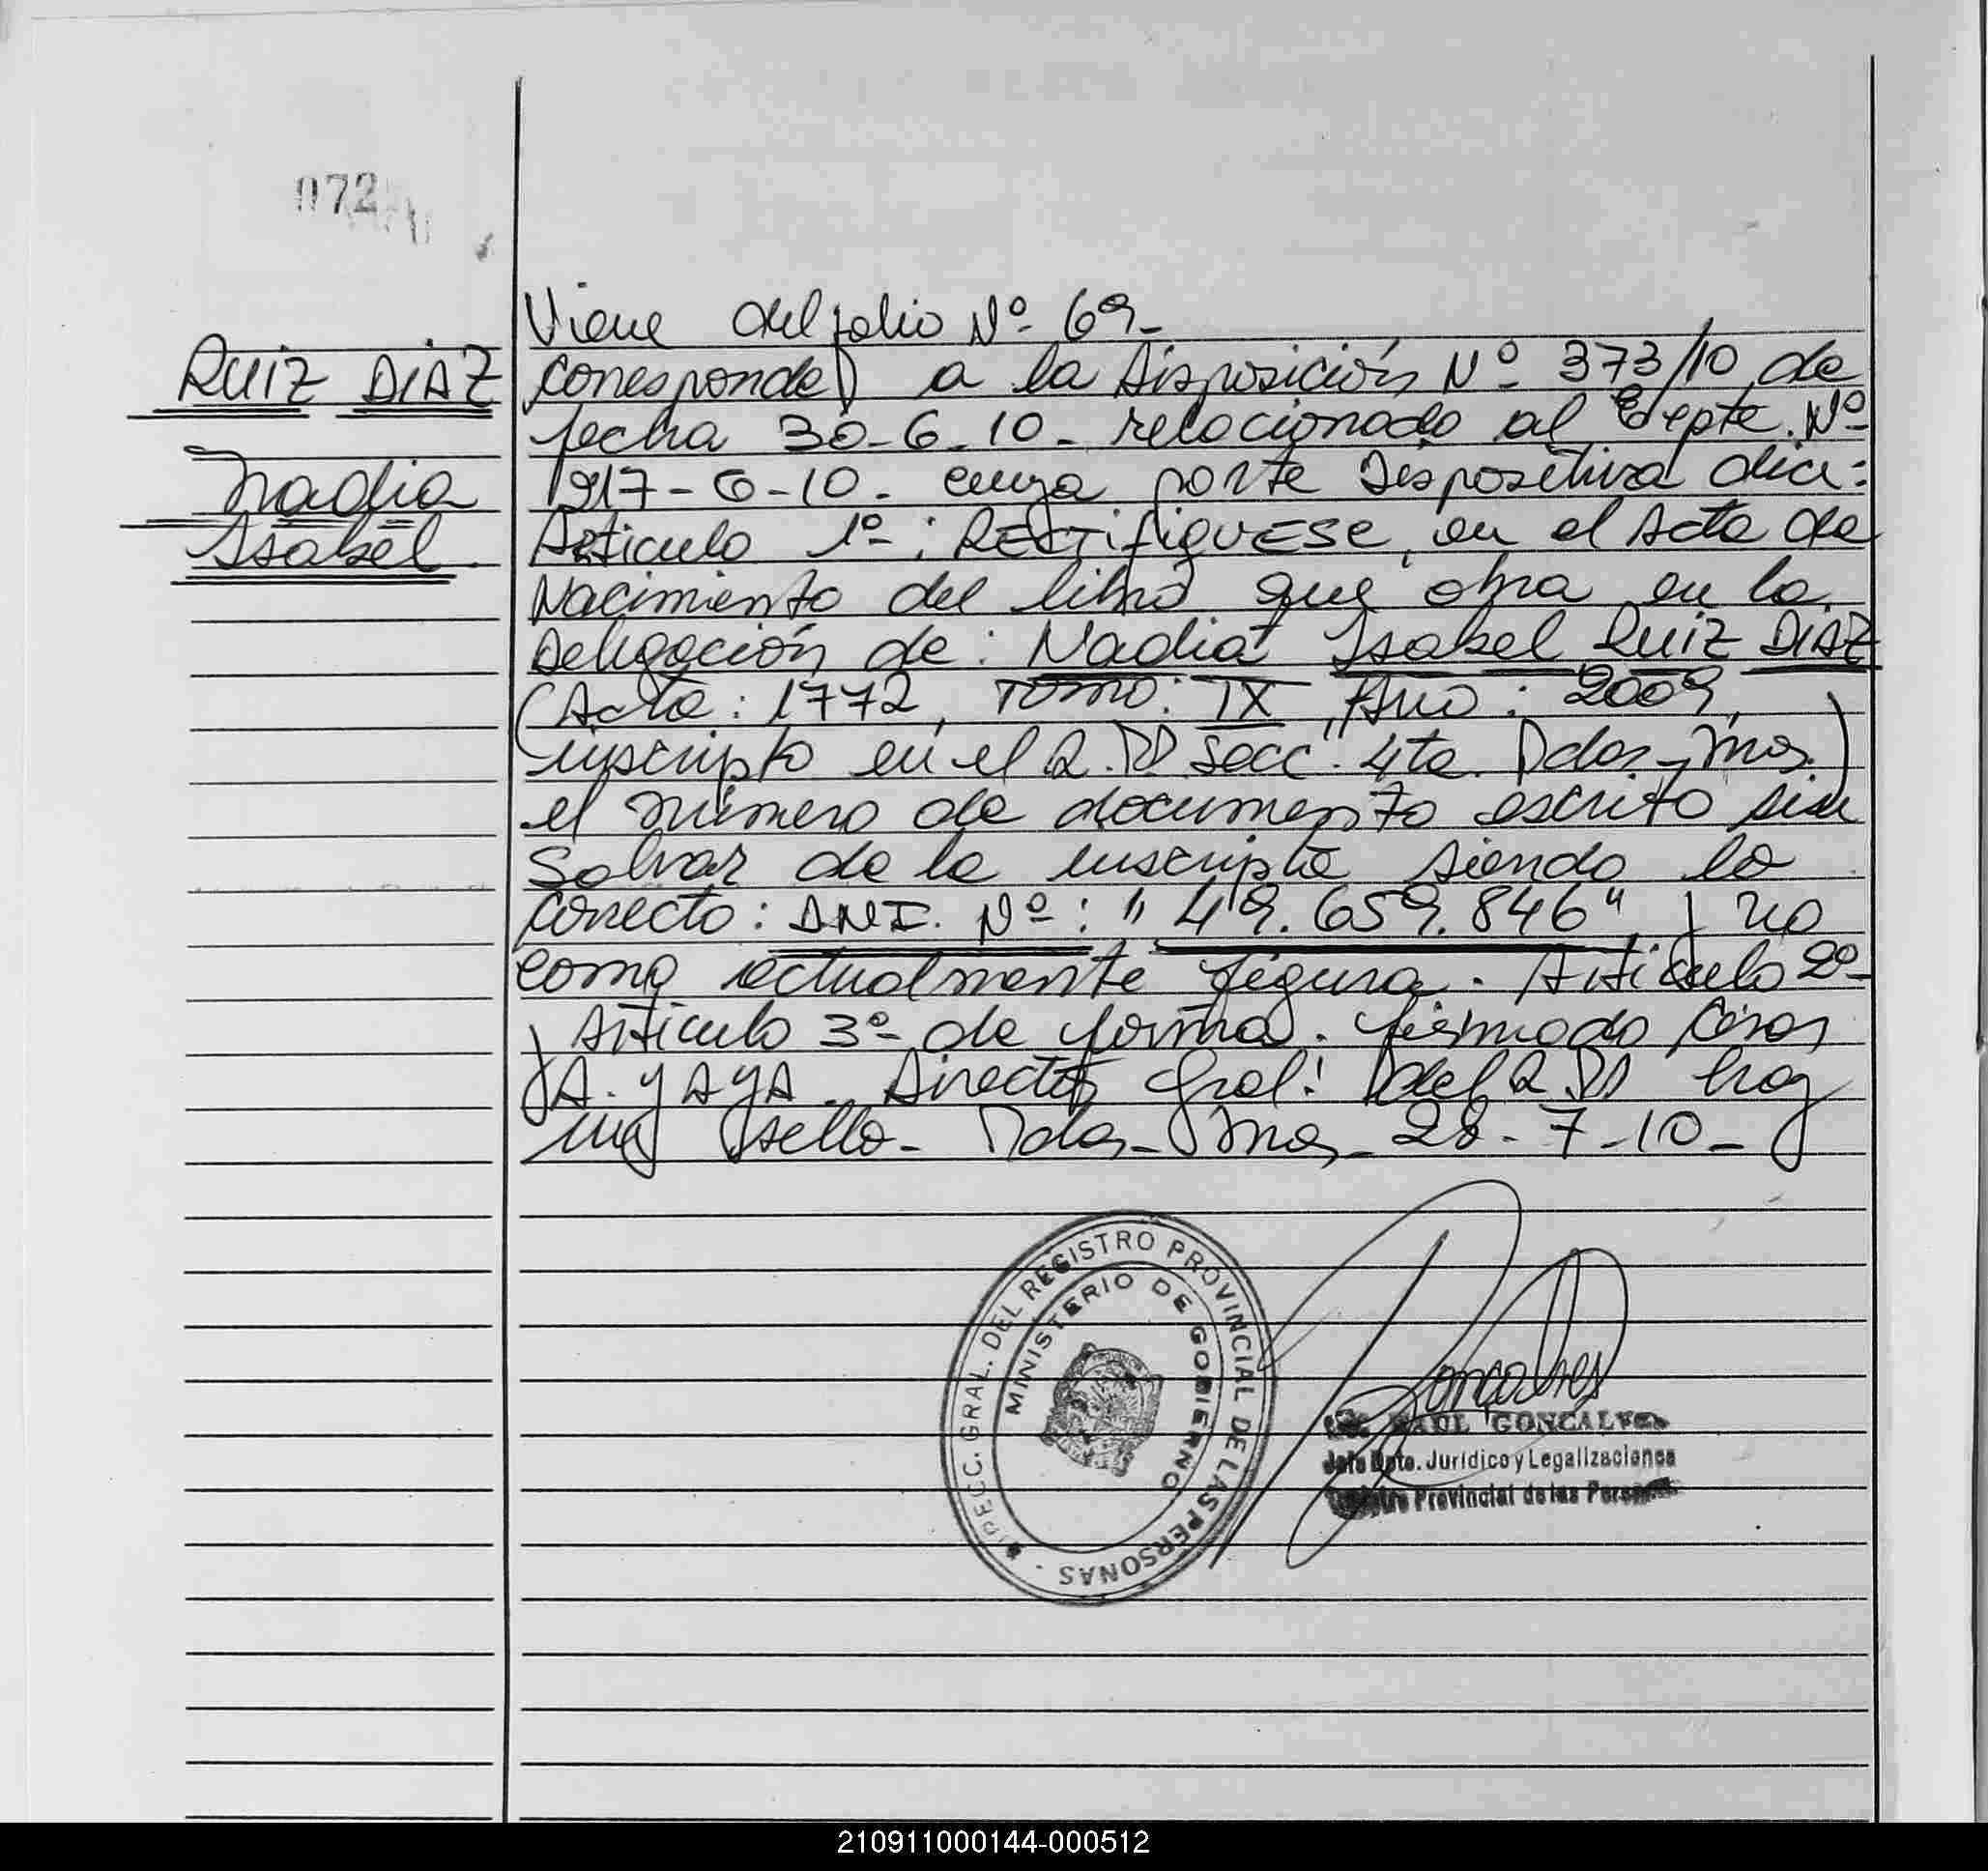 072
Viene del folio Nº 69-
RUIZ DIAZ
Nadia
Isabel
Corresponde a la Disposición Nº 373/10 de
fecha 30-6-10- relacionado al Expte. Nº
917-G-10- cuya parte Dispositiva dice:
Articulo 1º: RECTIFIQUESE, en el Acta de
Nacimiento del libro que obra en la
Delegación de: Nadia Isabel Ruiz DIAZ
(Acta: 1772, Tomo: IX, Año: 2009,
inscripto en el R.P.P. Secc. 4ta. Pdas-Mnes.)
el número de documento escrito sin
Salvar de la inscripta siendo lo
correcto: D.N.I. Nº: "49.659.846" y no
como actualmente figura. Articulo 2º-
y Articulo 3º- de forma. firmado César
A. YAYA. Director Gral. del R.P.P. hay
un sello- Pdas-Mnes- 28-7-10-
DIRECC. GRAL. DEL REGISTRO PROVINCIAL DE LAS PERSONAS -
MINISTERIO DE GOBIERNO
Goncalves
RAUL GONCALVES
Jefe Dpto. Jurídico y Legalizaciones
Registro Provincial de las Personas
210911000144-000512